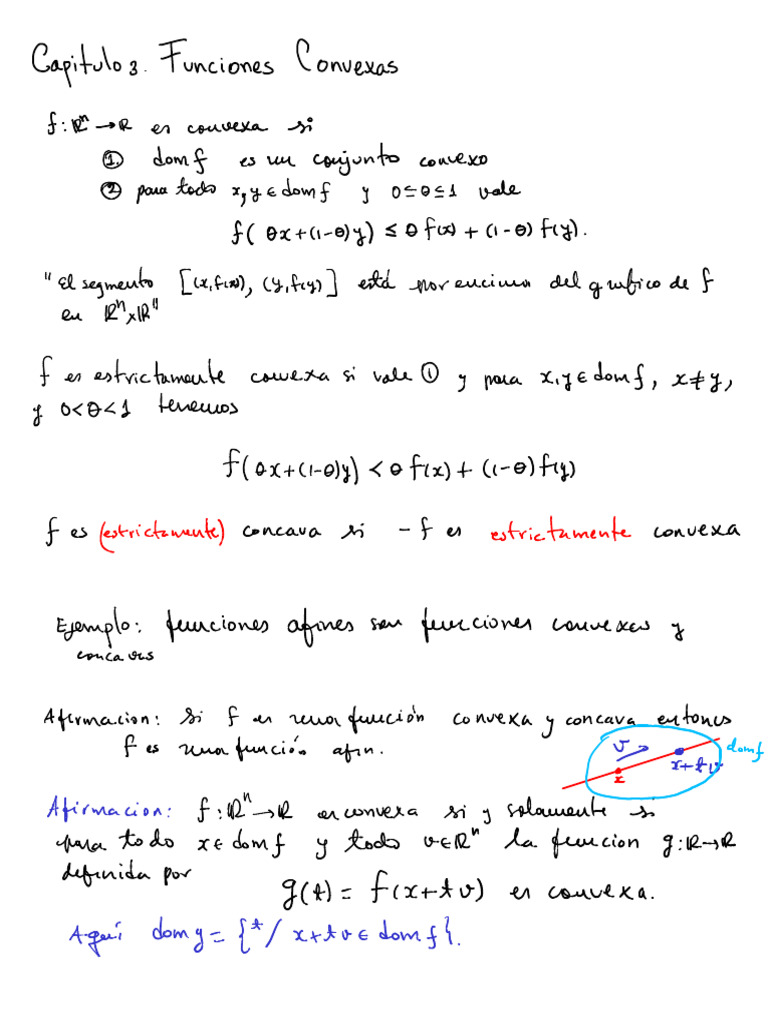 Capitulo 3. Funciones Convexas
f: ℝⁿ → ℝ es convexa si
① dom f es un conjunto convexo
② para todo x, y ∈ dom f y 0 ≤ θ ≤ 1 vale
f( θx + (1-θ)y) ≤ θ f(x) + (1-θ) f(y).
"El segmento [(x, f(x)), (y, f(y))] está por encima del grafico de f
en ℝⁿ×ℝ"
f es estrictamente convexa si vale ① y para x, y ∈ dom f, x ≠ y,
y 0<θ<1 tenemos
f(θx + (1-θ)y) < θ f(x) + (1-θ) f(y)
f es (estrictamente) concava si -f es estrictamente convexa
Ejemplo: funciones afines son funciones convexas y
concavas
Afirmacion: Si f es una función convexa y concava entonces
f es una función afin.
v
dom f
x
x+tv
Afirmacion: f: ℝⁿ → ℝ es convexa si y solamente si
para todo x ∈ dom f y todo v ∈ ℝⁿ la funcion g: ℝ → ℝ
definida por
g(t) = f(x+tv) es convexa.
Aqui dom g = {t / x+tv ∈ dom f}.